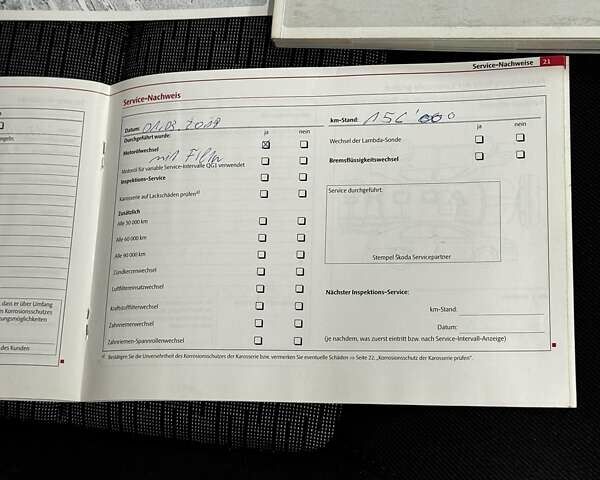 Service-Nachweise 21
Service-Nachweis
Datum: 01.03.2019 km-Stand: 156'000
Durchgeführt wurde: ja nein ja nein
Motorölwechsel
mit Filter
Motoröl für variable Service-Intervalle QG1 verwendet
Inspektions-Service
Karosserie auf Lackschäden prüfen a)
Zusätzlich
Alle 30 000 km
Alle 60 000 km
Alle 90 000 km
Zündkerzenwechsel
Luftfiltereinsatzwechsel
Kraftstofffilterwechsel
Zahnriemenwechsel
Zahnriemen-Spannrollenwechsel
Wechsel der Lambda-Sonde
Bremsflüssigkeitswechsel
Service durchgeführt:
Stempel Škoda Servicepartner
Nächster Inspektions-Service:
km-Stand:
Datum:
(je nachdem, was zuerst eintritt bzw. nach Service-Intervall-Anzeige)
a) Bestätigen Sie die Unversehrtheit des Korrosionsschutzes der Karosserie bzw. vermerken Sie eventuelle Schäden ⇒ Seite 22, „Korrosionsschutz der Karosserie prüfen".
, dass er über Umfang
es Korrosionsschutzes
tungsmöglichkeiten
des Kunden